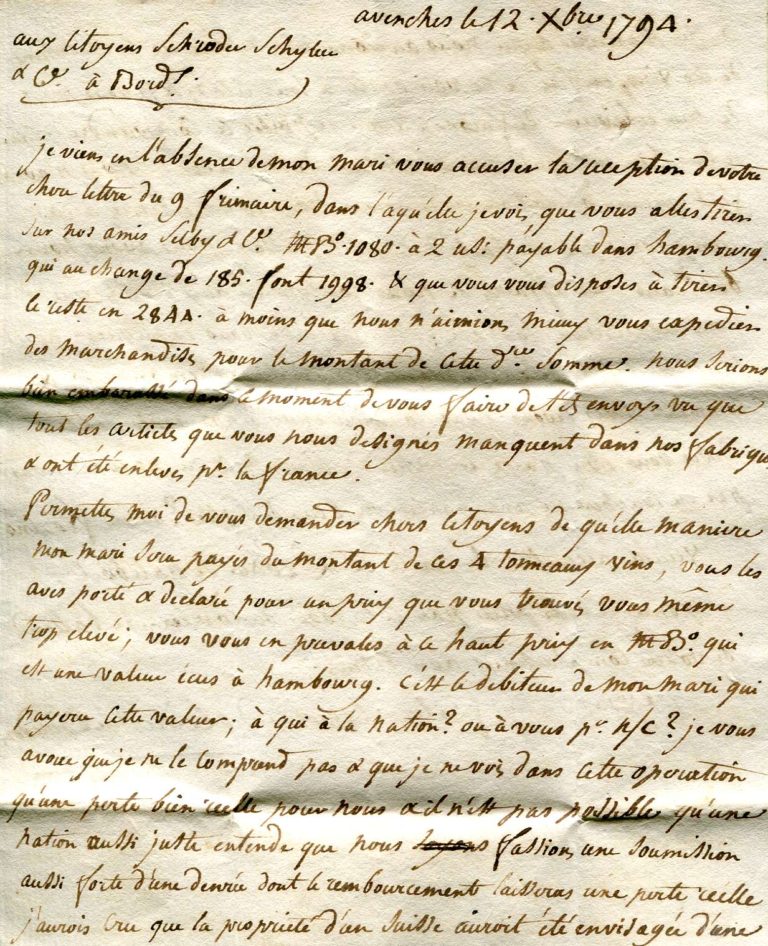 avenches le 12. Xbre 1794.
aux Citoyens Schroder Schyler
& Ce. à Bord.
je viens en l'absence de mon mari vous accuser la reception de votre
chere lettre du 9 frimaire, dans laquelle je vois que vous alles tirer
sur nos amis Selby & Ce. 1080. à 2 us: payable dans hambourg.
qui au change de 185. font 1998. & que vous vous disposes à tirer
le reste en 2844. à moins que nous n'aimions mieux vous expedier
des marchandises pour le montant de cette dite somme. nous serions
bien embarassé dans le moment de vous faire de tels envoys vu que
tout les articles que vous nous designés manquent dans nos fabriques
& ont été enleves pr. la france.
Permettes moi de vous demander chers Citoyens de quelle maniere
mon mari sera payés du montant de ces 4 tonneaux vins, vous les
aves porté & declaré pour un prix que vous trouvés vous même
trop elevé; vous vous en prevales à ce haut prix en qui
est une valeur écus à hambourg. C'est le debiteur de mon mari qui
payera cette valeur; à qui à la nation? ou à vous pr. n/C? je vous
avoue que je ne le comprend pas & que je ne vois dans cette operation
qu'une perte bien reelle pour nous & il n'est pas possible qu'une
nation aussi juste entende que nous fassions une soumission
aussi forte d'une denrée dont le remboursement laisseras une perte reelle
j'aurois cru que la proprieté d'un Suisse auroit été envisagée d'une